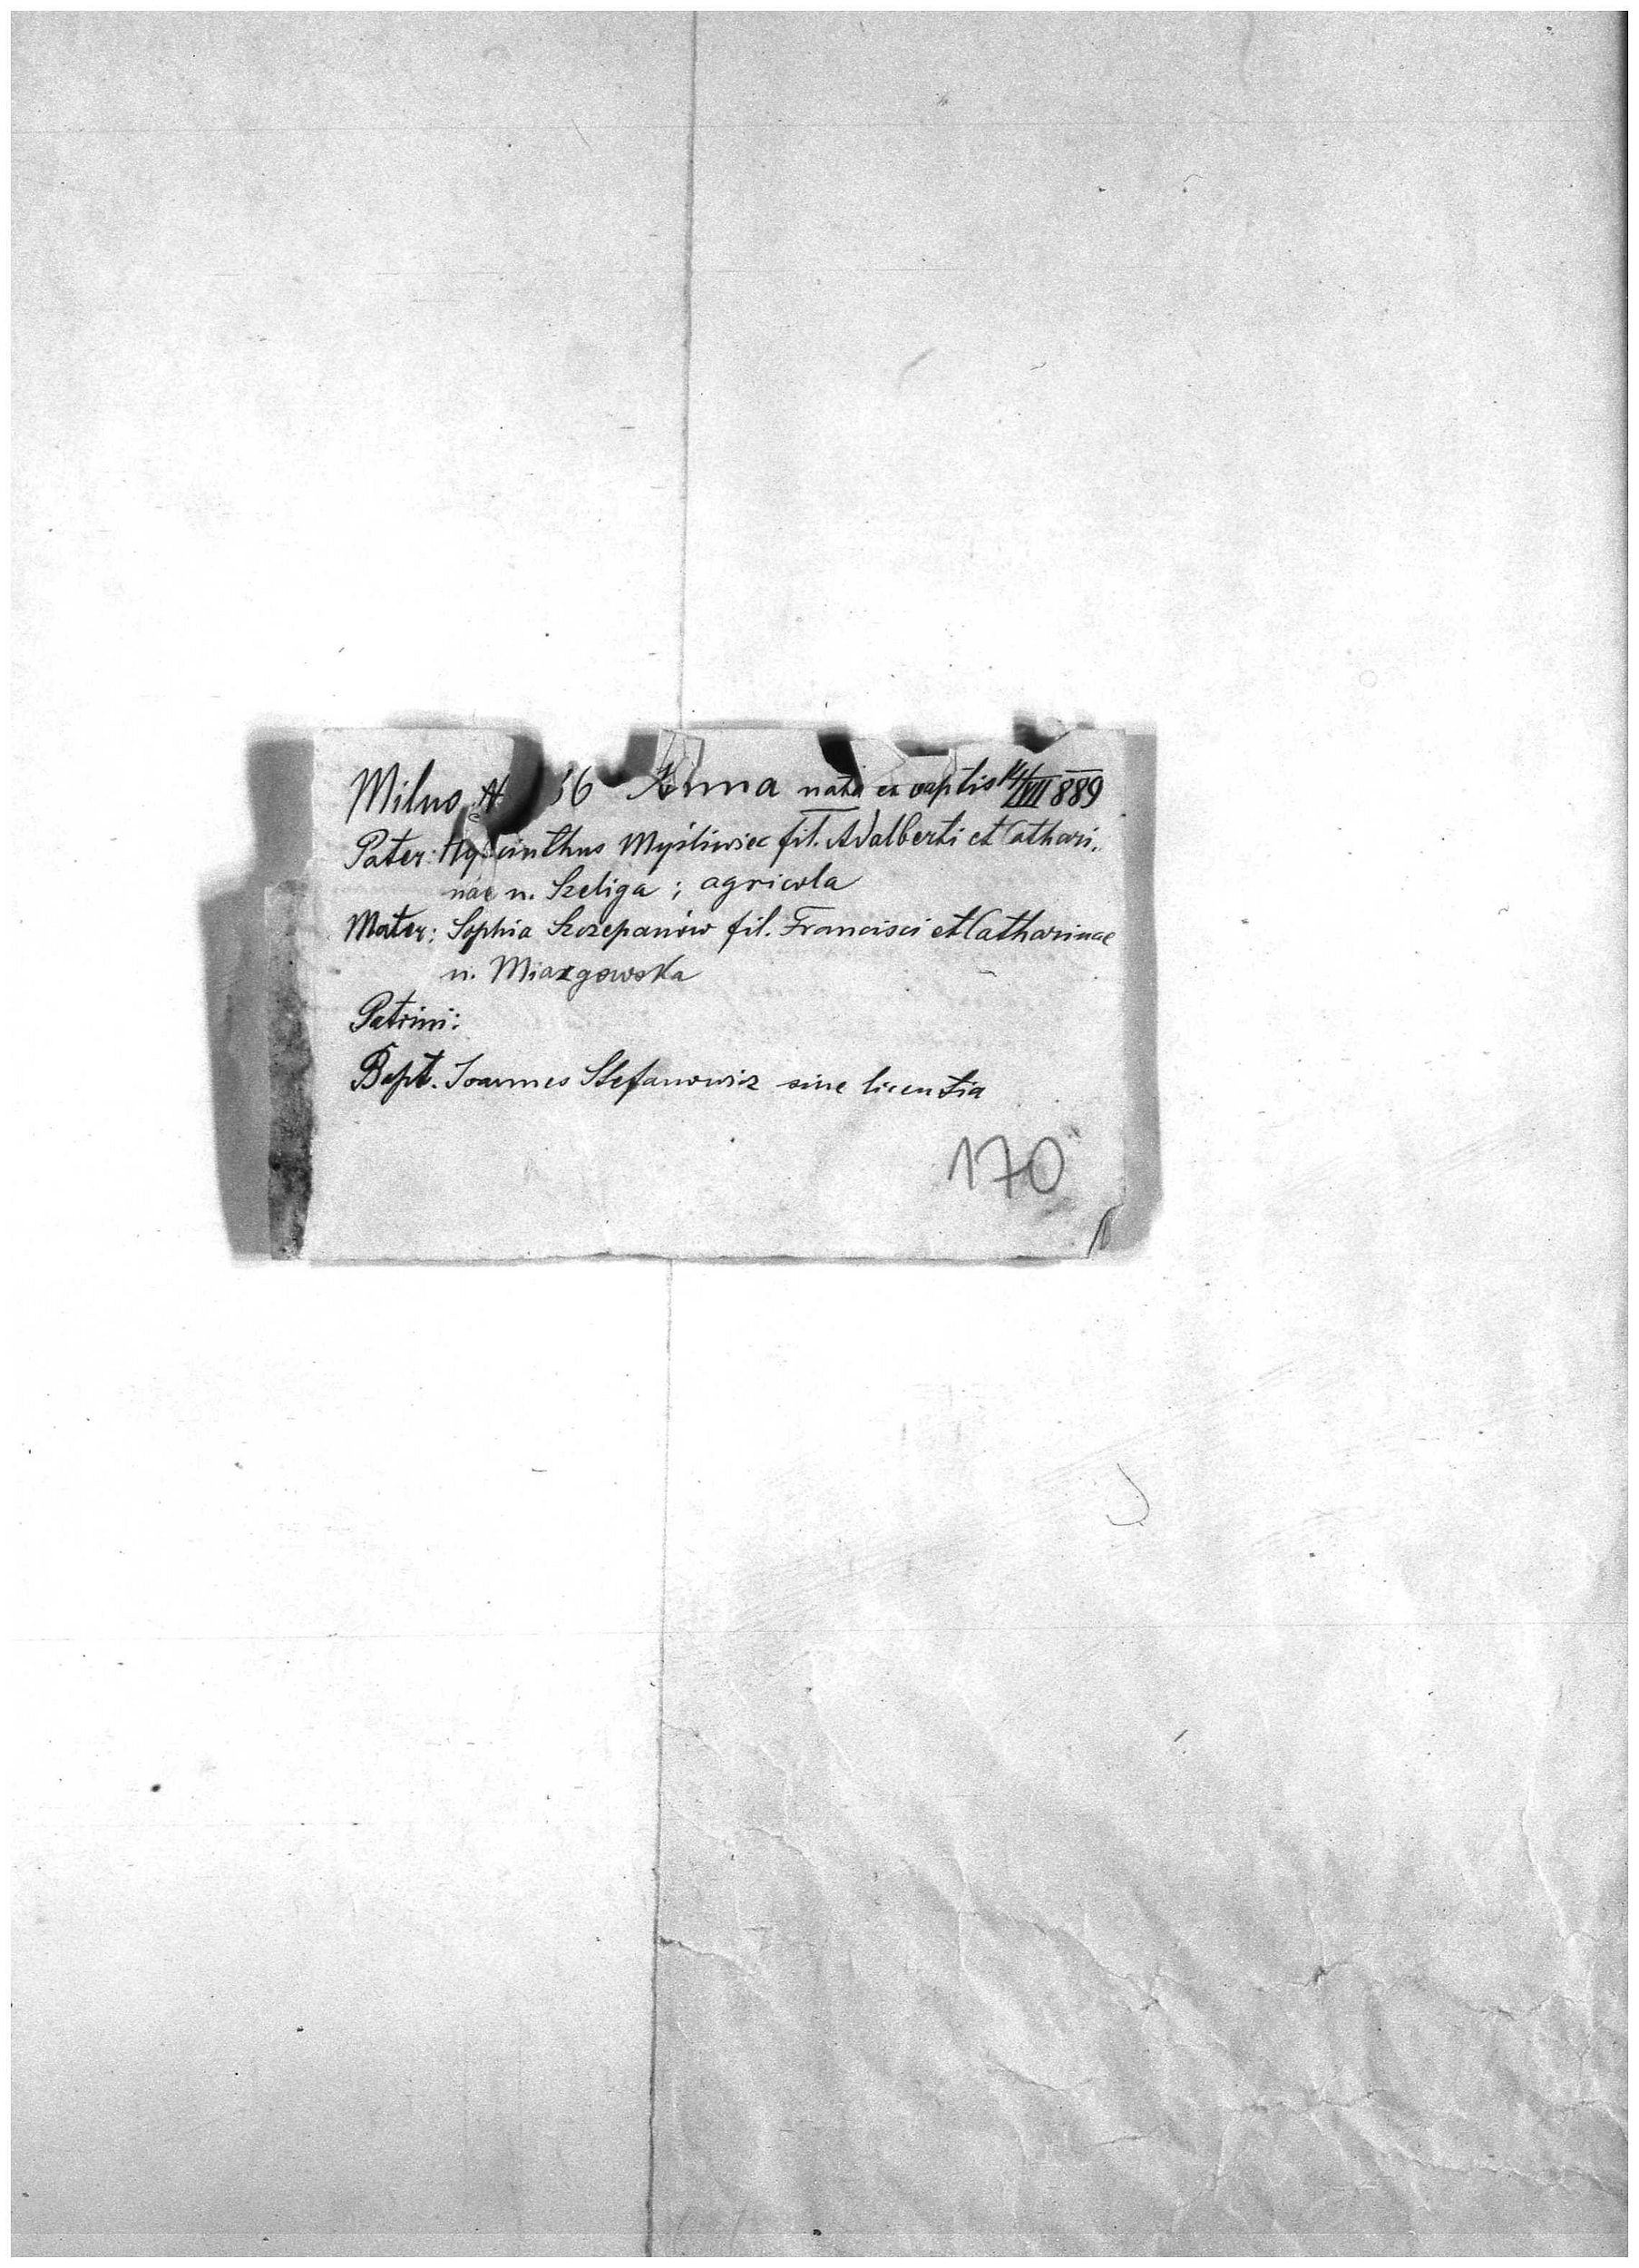 Milno 56 Anna nata et baptis 14/VII 889
Pater: Hyacinthus Myśliwiec fil. Adalberti et Cathari.
nae n. Szeliga ; agricola
Mater: Sophia Szczepanów fil. Francisci et Catharinae
n. Miazgowska
Patrini:
Bapt. Joannes Stefanowicz sine licentia
170